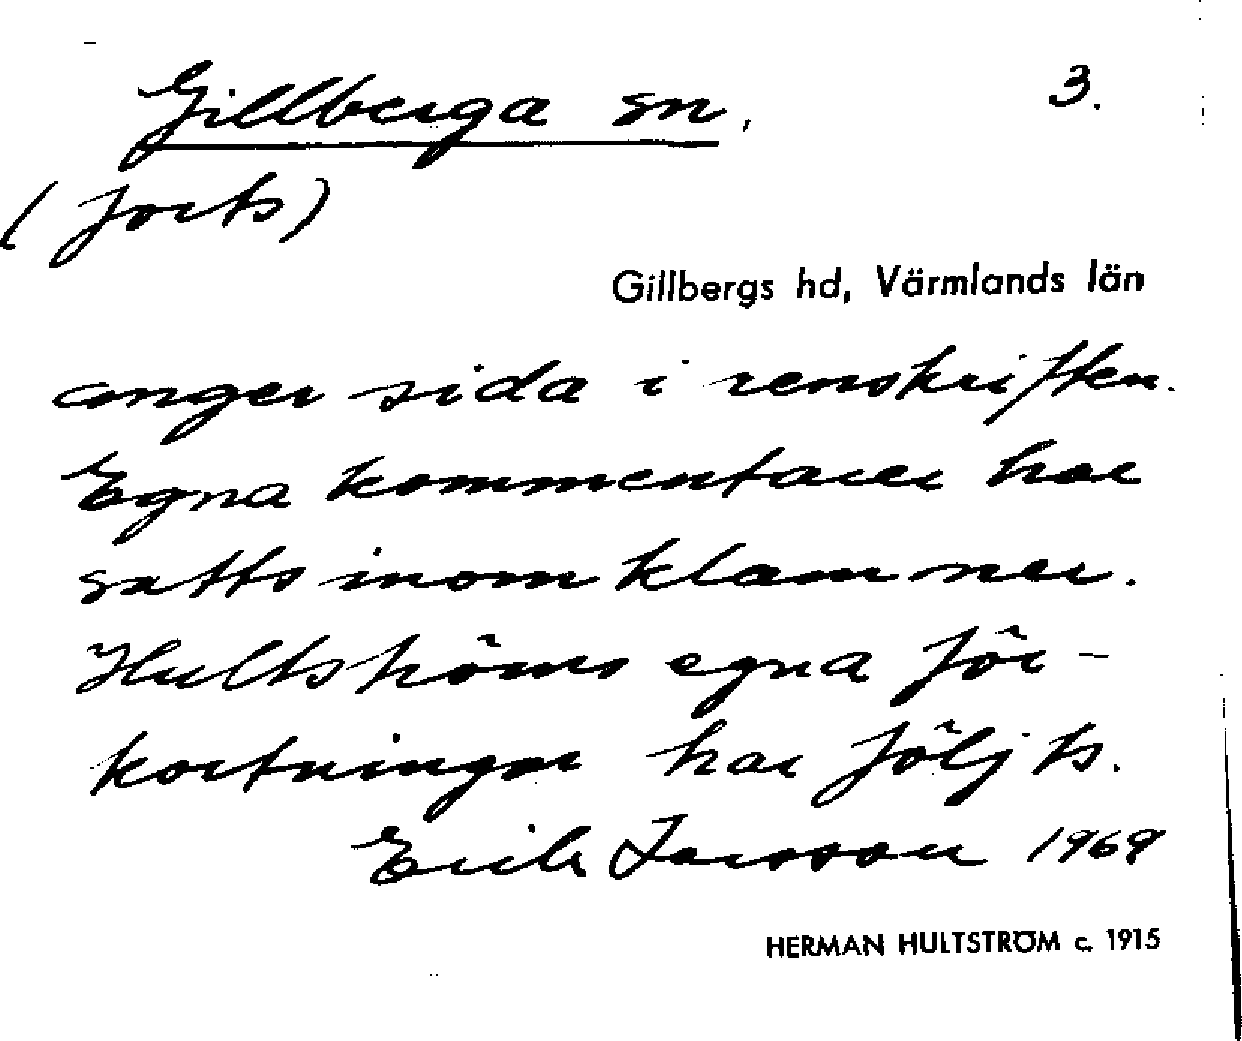 Gillberga sn, 3.
(forts)
Gillbergs hd, Värmlands län
anger sida i renskriften.
Egna kommentarer har
satts inom klamner.
Hultströms egna för-
kortningar har följts.
Erik Larsson 1969
HERMAN HULTSTRÖM c. 1915